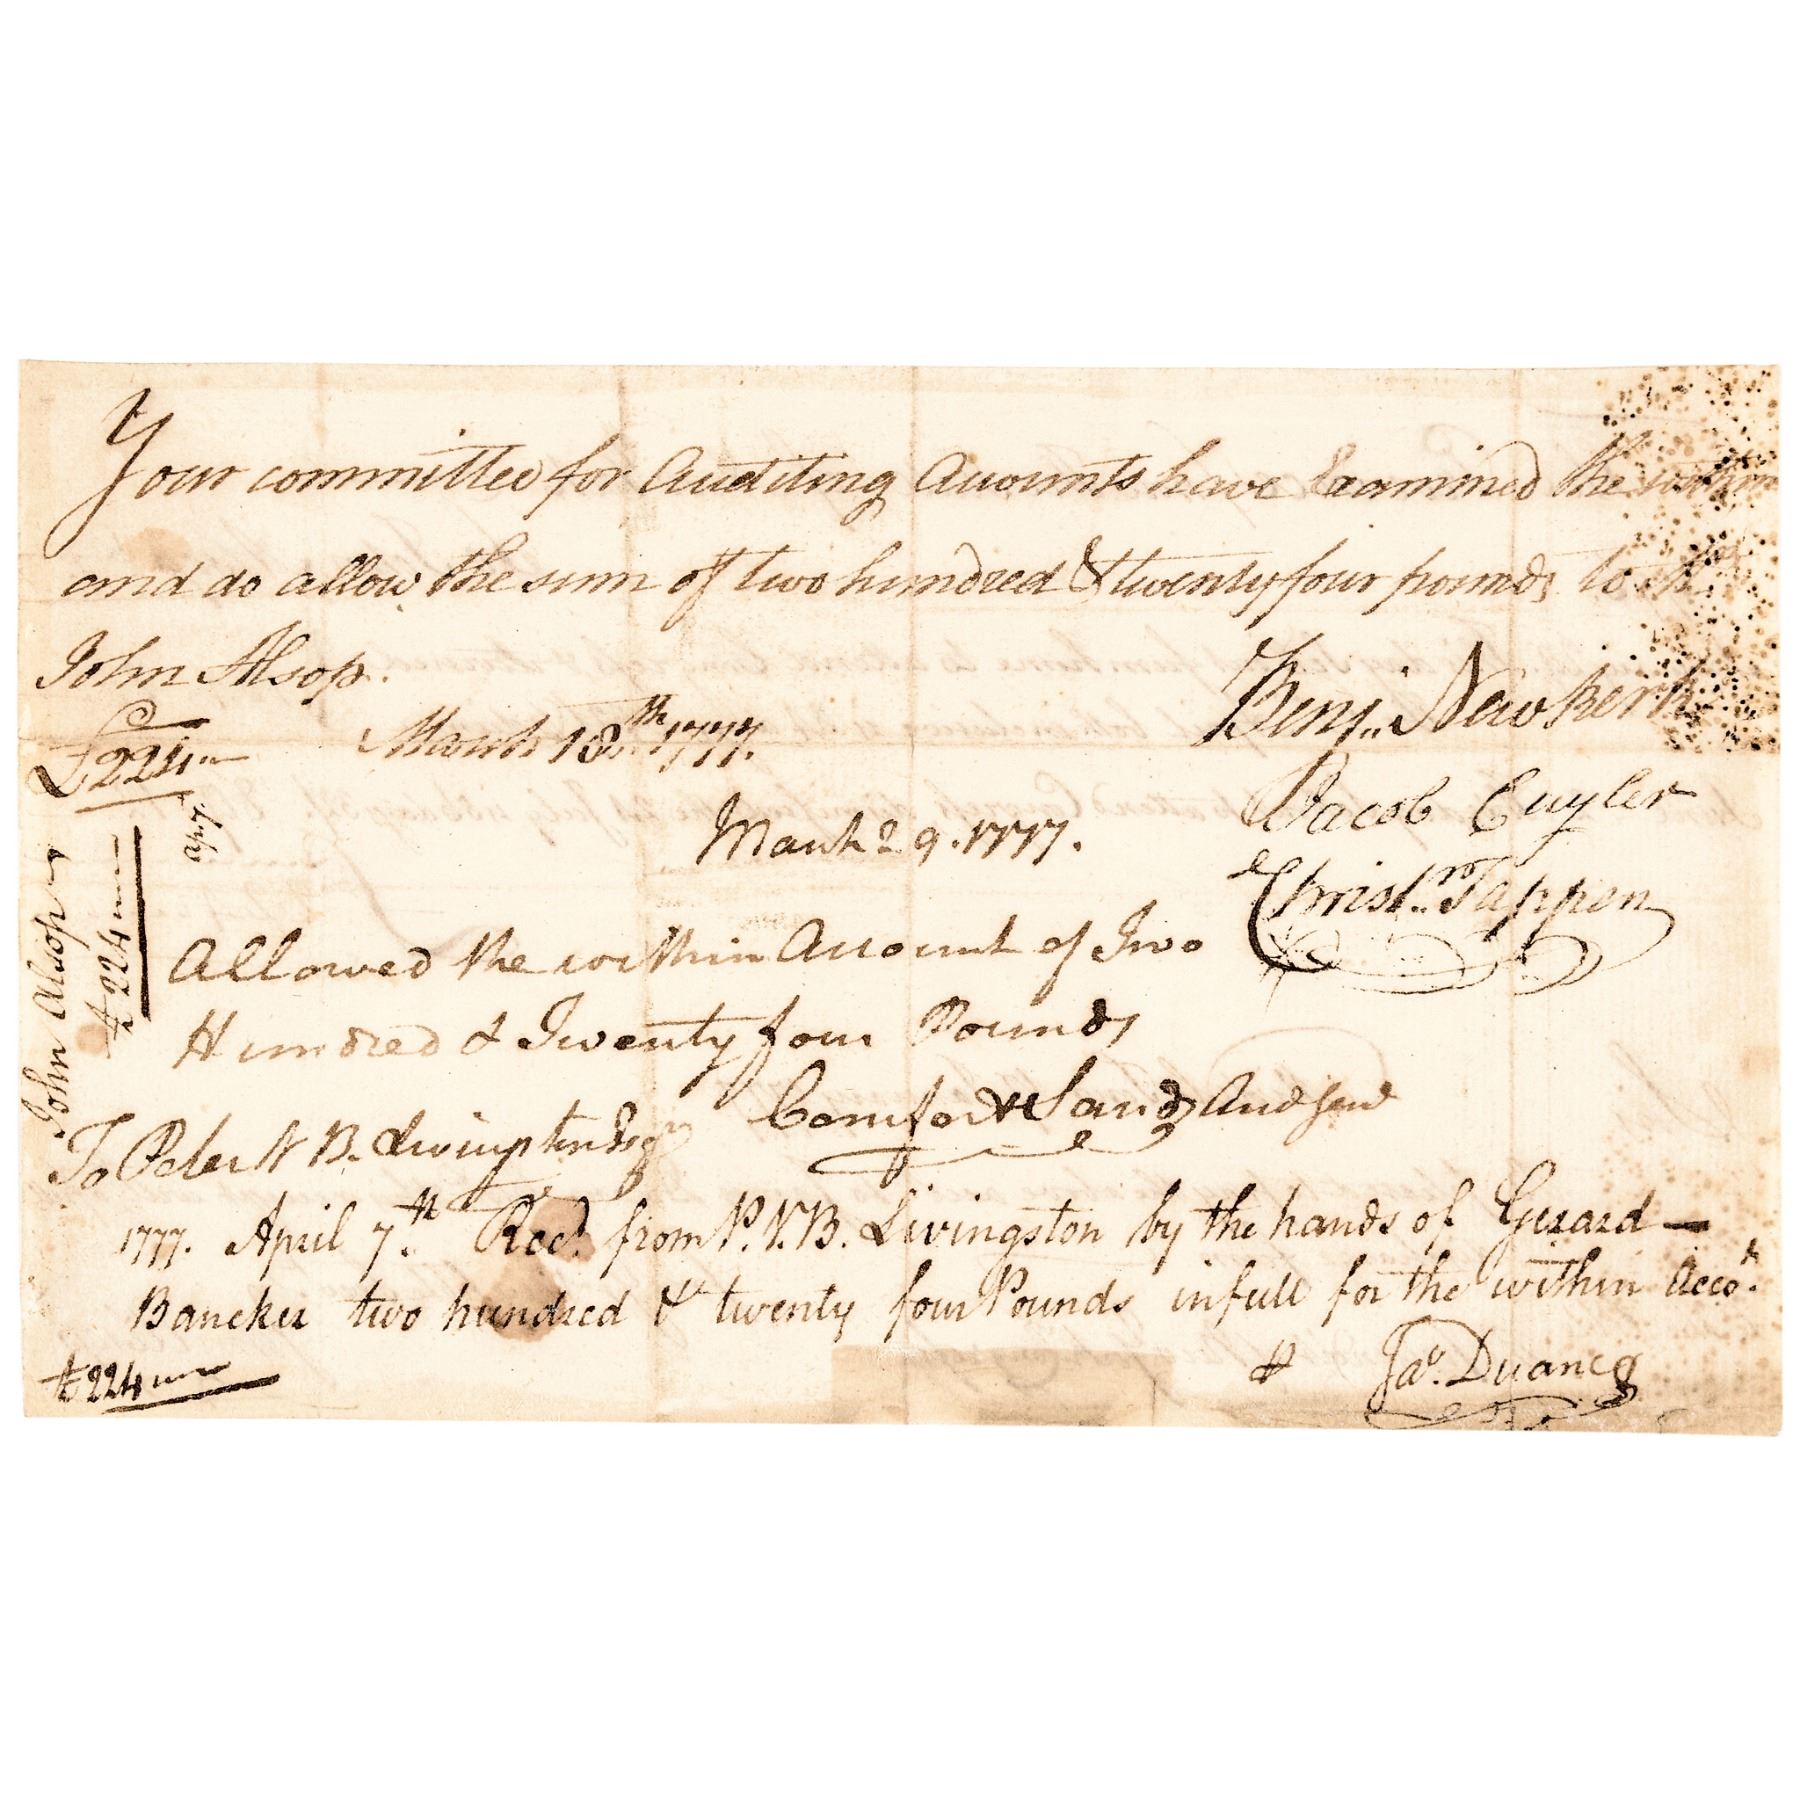 Your committee for Auditing Accounts have Examined the within
and do allow the sum of two hundred & twenty four pounds to
John Alsop.
£224..
March 18.th 1777.
Benj.. Newkerk
Jacob Cuyler
Christ..r Tappen
March 29. 1777.
Allowed the within Account of Two
Hundred & Twenty four Pounds
Comfort Sands Aud Gen
To Peter V B. Livingston Esqr
1777. April 7.th Recd. from P. V. B. Livingston by the hands of Gerard —
Bancker two hundred & twenty four Pounds in full for the within Acco.t
£224
Jas. Duane
John Alsop
£224